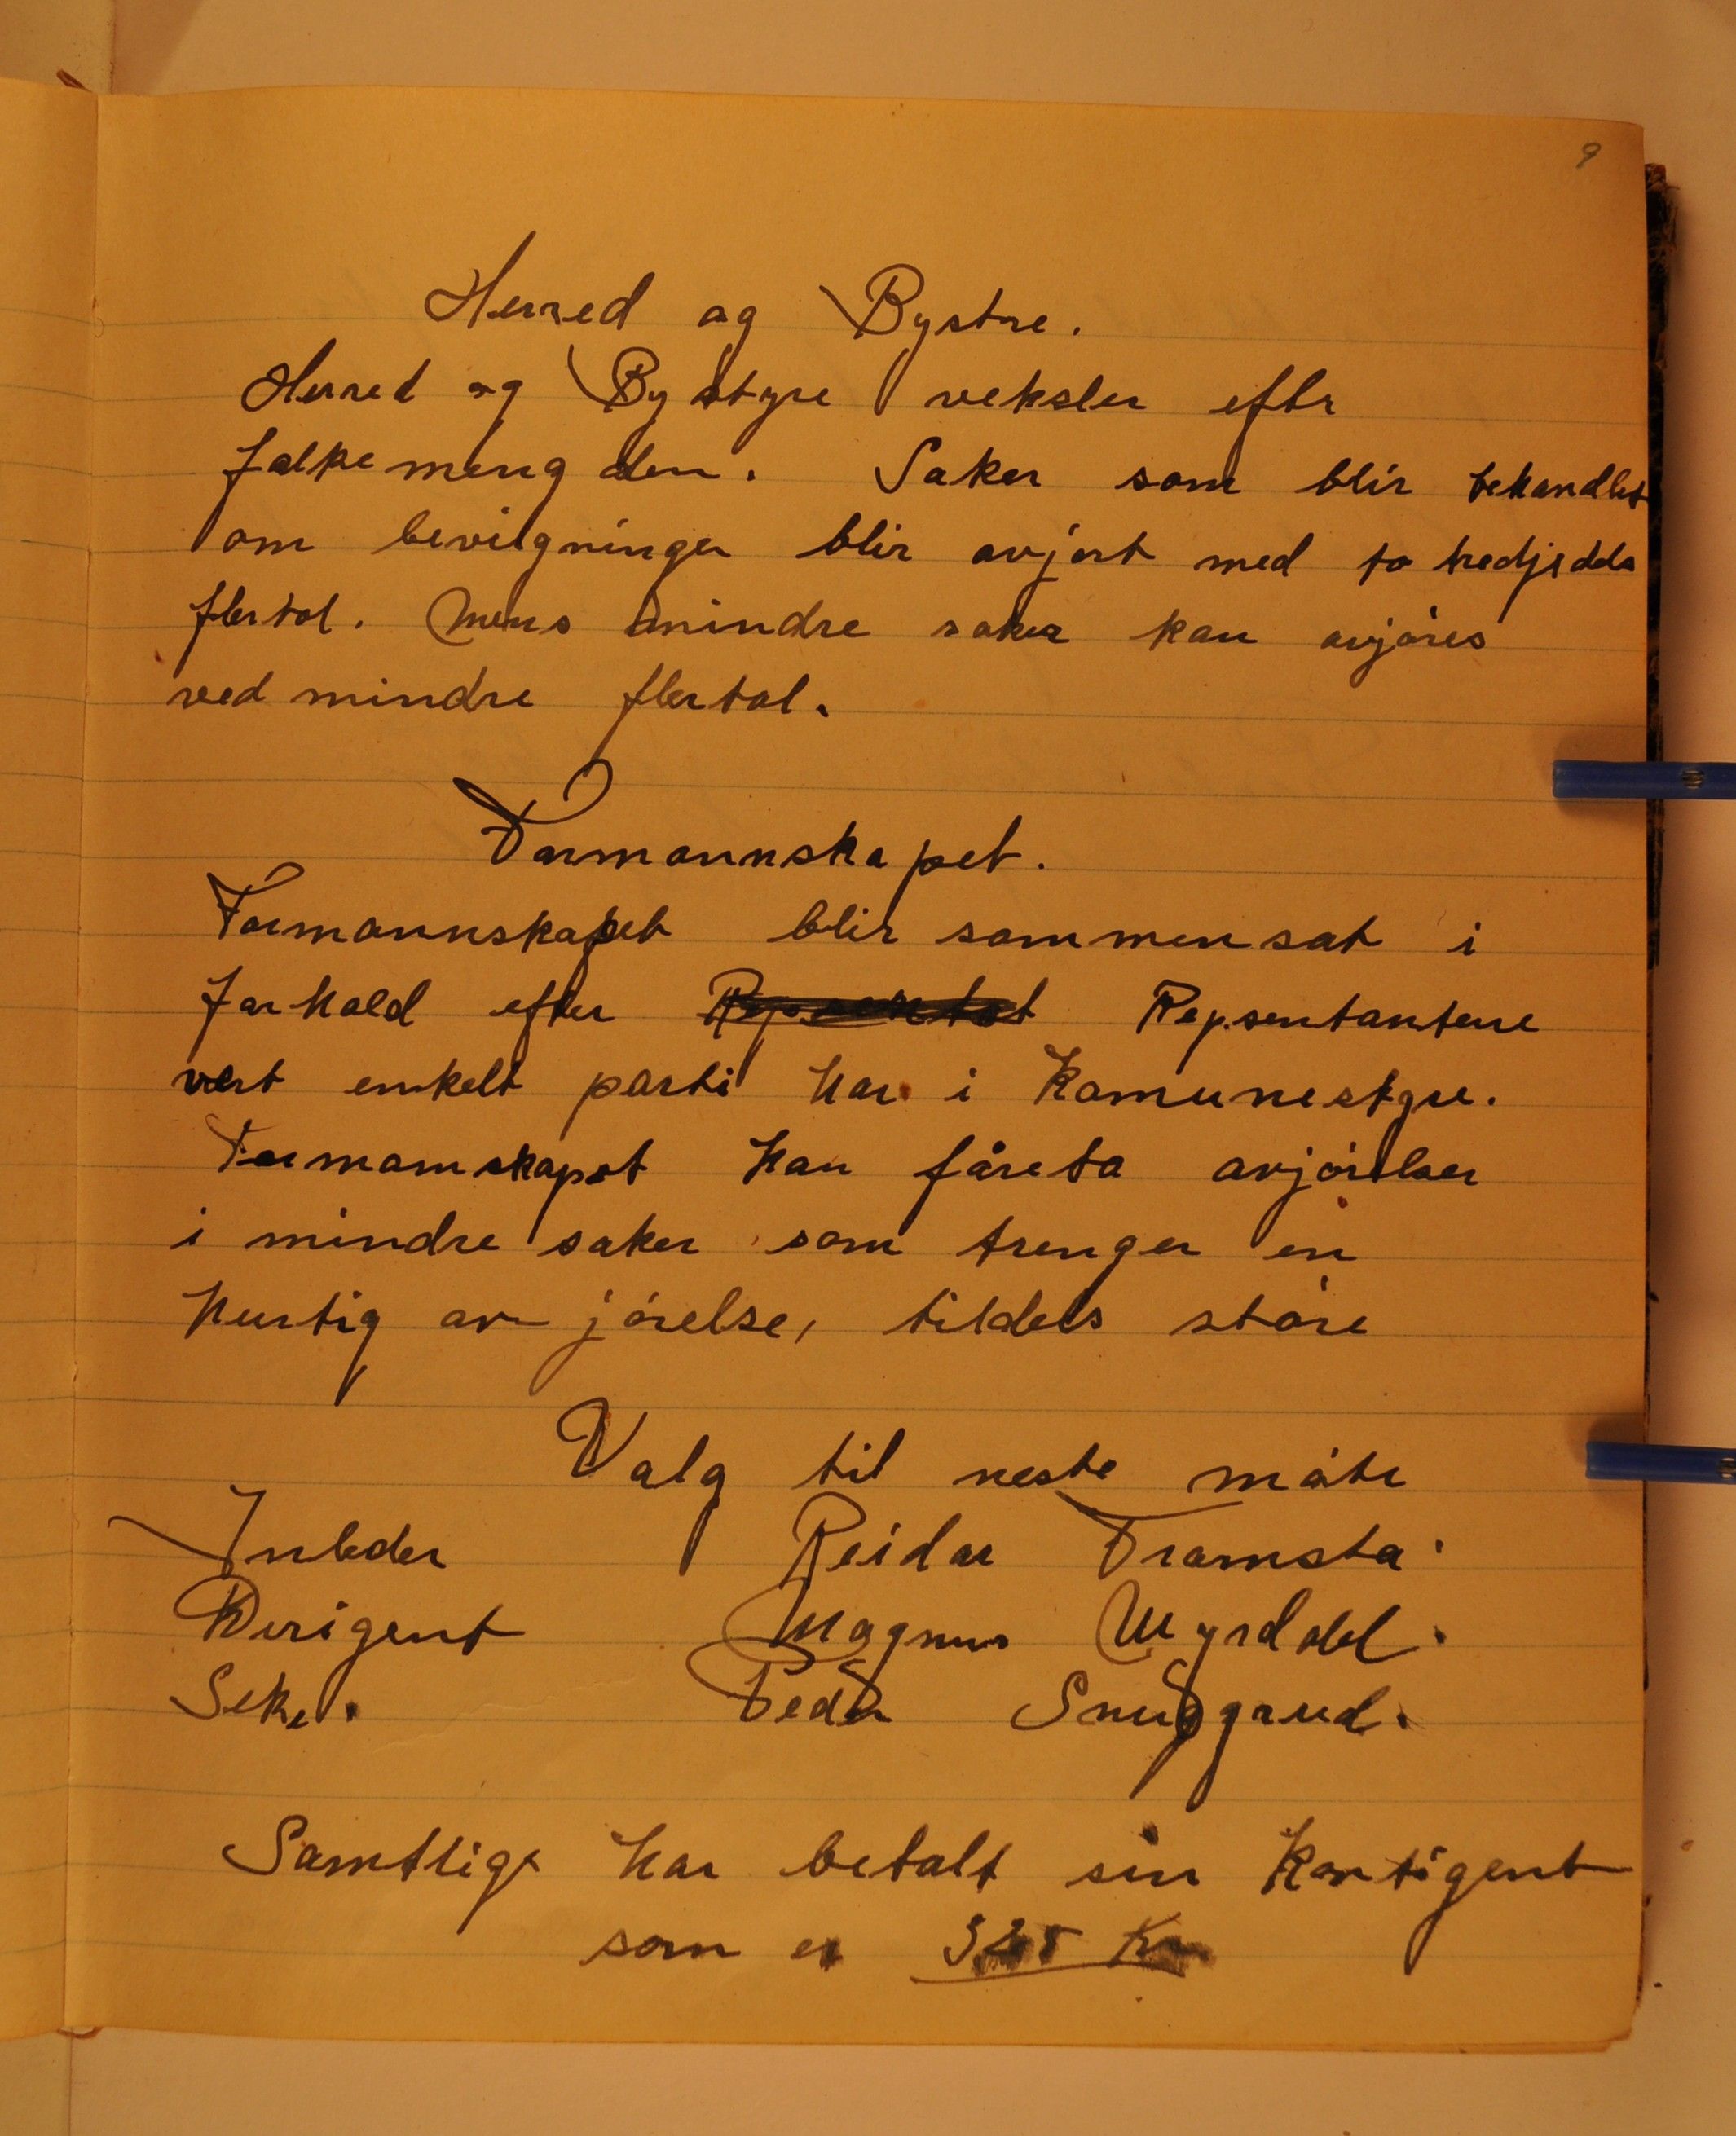 9
Herred og Bystre.
Herred og Bystyre veksler eftr
folkemengden. Saker som blir behandlet
om bevilgninger blir avjort med to tredjedels
flertal. Mens mindre saker kan avjøres
ved mindre flertal.
Formannskapet.
Formannskapet blir sammensat i
forhold efter Repsentantene
vert enkelt parti har i Komunestyre.
Formannskapet kan fåreta avjørelser
i mindre saker som trenger en
hurtig avjørelse, tildels støre
Valg til neste møte
Inleder Reidar Tramsta.
Dirigent Magnus Myrdahl.
Sekr. Peder Snuggrud.
Samtlige har betalt sin Kontigent
som er Kr